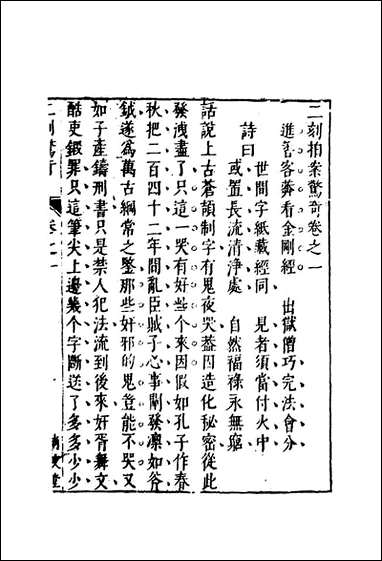 二刻拍案驚奇卷之一
進香客莽看金剛經　出獄僧巧完法會分
詩曰
世間字紙藏經同　見者須當付火中
或置長流清淨處　自然福祿永無窮
話說上古蒼頡制字有鬼夜哭蓋因造化秘密從此
發洩盡了只這一哭有好些个來因假如孔子作春
秋把二百四十二年間亂臣賊子心事闡發凜如斧
鉞遂爲萬古綱常之鑒那些奸邪的鬼豈能不哭又
如子產鑄刑書只是禁人犯法流到後來奸胥舞文
酷吏鍛罪只這筆尖上邊幾个字斷送了多多少少
卷之一